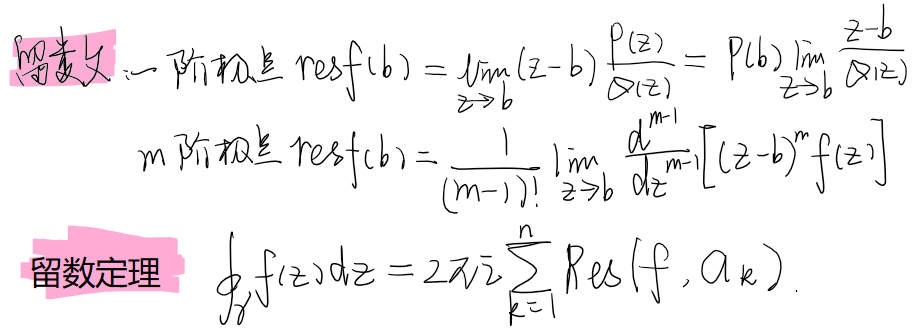 留数: 一阶极点 resf(b) = lim_{z→b} (z-b) P(z)/Q(z) = P(b) lim_{z→b} (z-b)/Q(z)
m阶极点 resf(b) = 1/(m-1)! lim_{z→b} d^{m-1}/dz^{m-1} [(z-b)^m f(z)]
留数定理 ∮_γ f(z)dz = 2πi ∑_{k=1}^{n} Res(f, a_k).